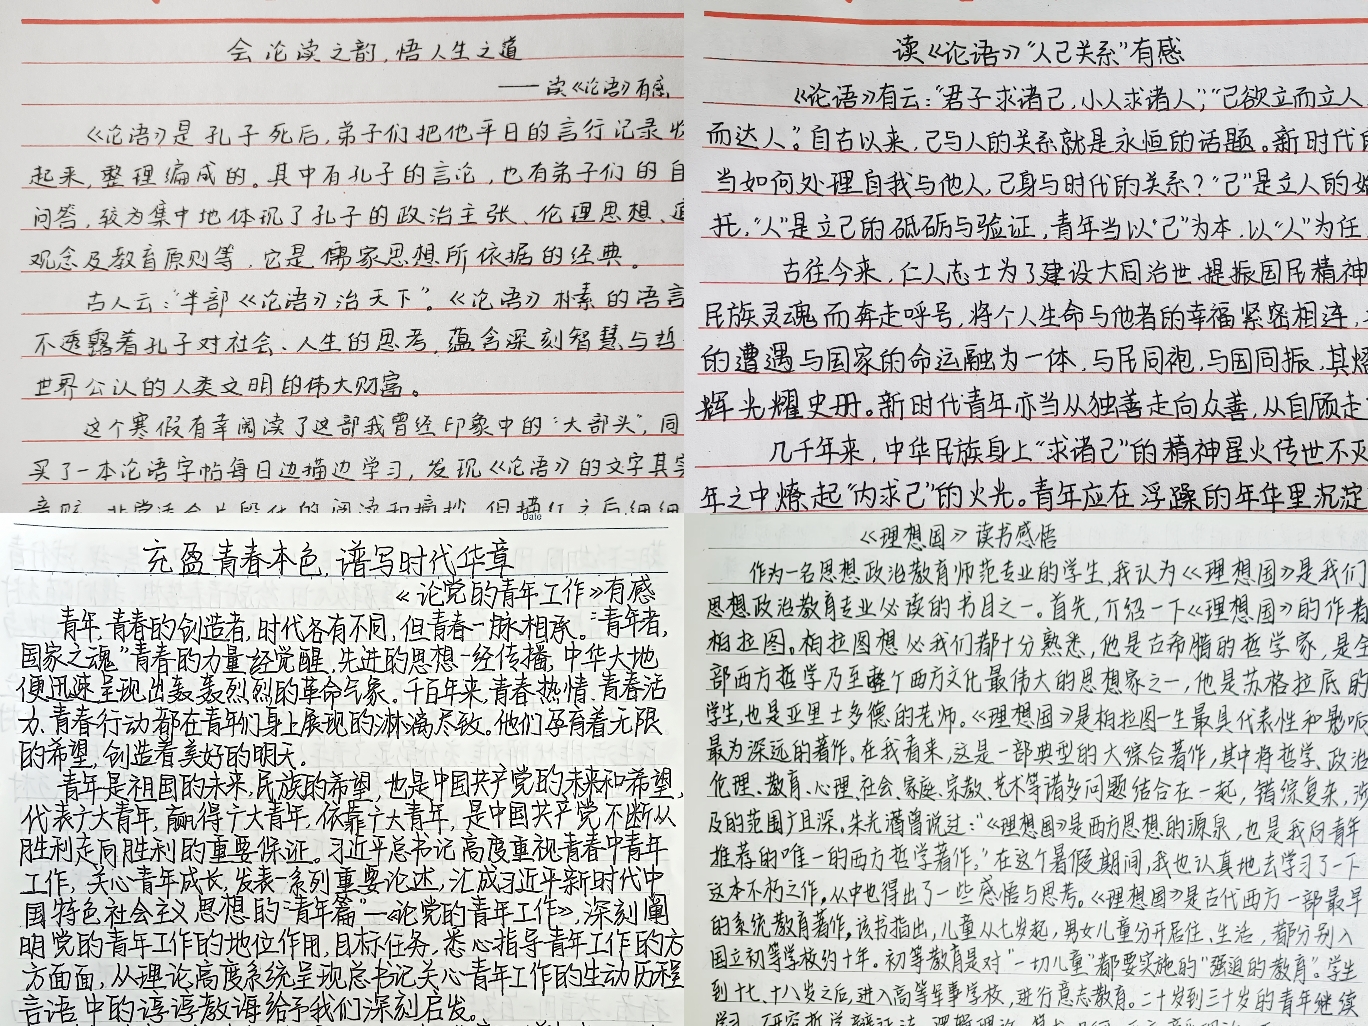 会论读之韵，悟人生之道
——读《论语》有感
《论语》是孔子死后，弟子们把他平日的言行记录收
起来，整理编成的。其中有孔子的言论，也有弟子们的自
问答，较为集中地体现了孔子的政治主张、伦理思想、道
观念及教育原则等，它是儒家思想所依据的经典。
古人云：“半部《论语》治天下”。《论语》朴素的语言
不透露着孔子对社会、人生的思考，蕴含深刻智慧与哲
世界公认的人类文明的伟大财富。
这个寒假有幸阅读了这部我曾经印象中的“大部头”，同
买了一本论语字帖每日边描边学习，发现《论语》的文字其实
读《论语》“人己关系”有感
《论语》有云：“君子求诸己，小人求诸人”，“己欲立而立人
而达人。”自古以来，己与人的关系就是永恒的话题。新时代
当如何处理自我与他人，己身与时代的关系？“己”是立人的
托，“人”是立己的砥砺与验证，青年当以“己”为本，以“人”为任
古往今来，仁人志士为了建设大同治世，提振国民精神
民族灵魂而奔走呼号，将个人生命与他者的幸福紧密相连，
的遭遇与国家的命运融为一体，与民同袍，与国同振，其熠
辉光耀史册。新时代青年亦当从独善走向众善，从自顾走
几千年来，中华民族身上“求诸己”的精神星火传世不灭
年之中燎起“内求己”的火光。青年应在浮躁的年华里沉淀
Date
充盈青春本色，谱写时代华章
《论党的青年工作》有感
青年，青春的创造者，时代各有不同，但青春一脉相承。“青年者，
国家之魂”青春的力量一经觉醒，先进的思想一经传播，中华大地
便迅速呈现出轰轰烈烈的革命气象。千百年来，青春热情、青春活
力、青春行动都在青年们身上展现的淋漓尽致。他们孕育着无限
的希望，创造着美好的明天。
青年是祖国的未来，民族的希望，也是中国共产党的未来和希望，
代表广大青年，赢得广大青年，依靠广大青年，是中国共产党不断从
胜利走向胜利的重要保证。习近平总书记高度重视青春中青年
工作，关心青年成长，发表一系列重要论述，汇成习近平新时代中
国特色社会主义思想的“青年篇”—《论党的青年工作》，深刻阐
明党的青年工作的地位作用，目标任务，悉心指导青年工作的方
方面面，从理论高度系统呈现总书记关心青年工作的生动历程
言语中的谆谆教诲给予我们深刻启发。
《理想国》读书感悟
作为一名思想政治教育师范专业的学生，我认为《理想国》是我们
思想政治教育专业必读的书目之一。首先，介绍一下《理想国》的作者
柏拉图。柏拉图想必我们都十分熟悉，他是古希腊的哲学家，是全
部西方哲学乃至整个西方文化最伟大的思想家之一，他是苏格拉底的
学生，也是亚里士多德的老师。《理想国》是柏拉图一生最具代表性和影响
最为深远的著作。在我看来，这是一部典型的大综合著作，其中将哲学、政治
伦理、教育、心理、社会、家庭、宗教、艺术等诸多问题结合在一起，错综复杂，涉
及的范围广且深，朱光潜曾说过：“《理想国》是西方思想的源泉，也是我向青年
推荐的唯一的西方哲学著作。”在这个暑假期间，我也认真地去学习了一下
这本不朽之作，从中也得出了一些感悟与思考。《理想国》是古代西方一部最早
的系统教育著作，该书指出，儿童从七岁起，男女儿童分开居住、生活，都分别入
国立初等学校约十年。初等教育是对“一切儿童”都要实施的“强迫的教育”。学生
到十七、十八岁之后，进入高等军事学校，进行意志教育。二十岁到三十岁的青年继续